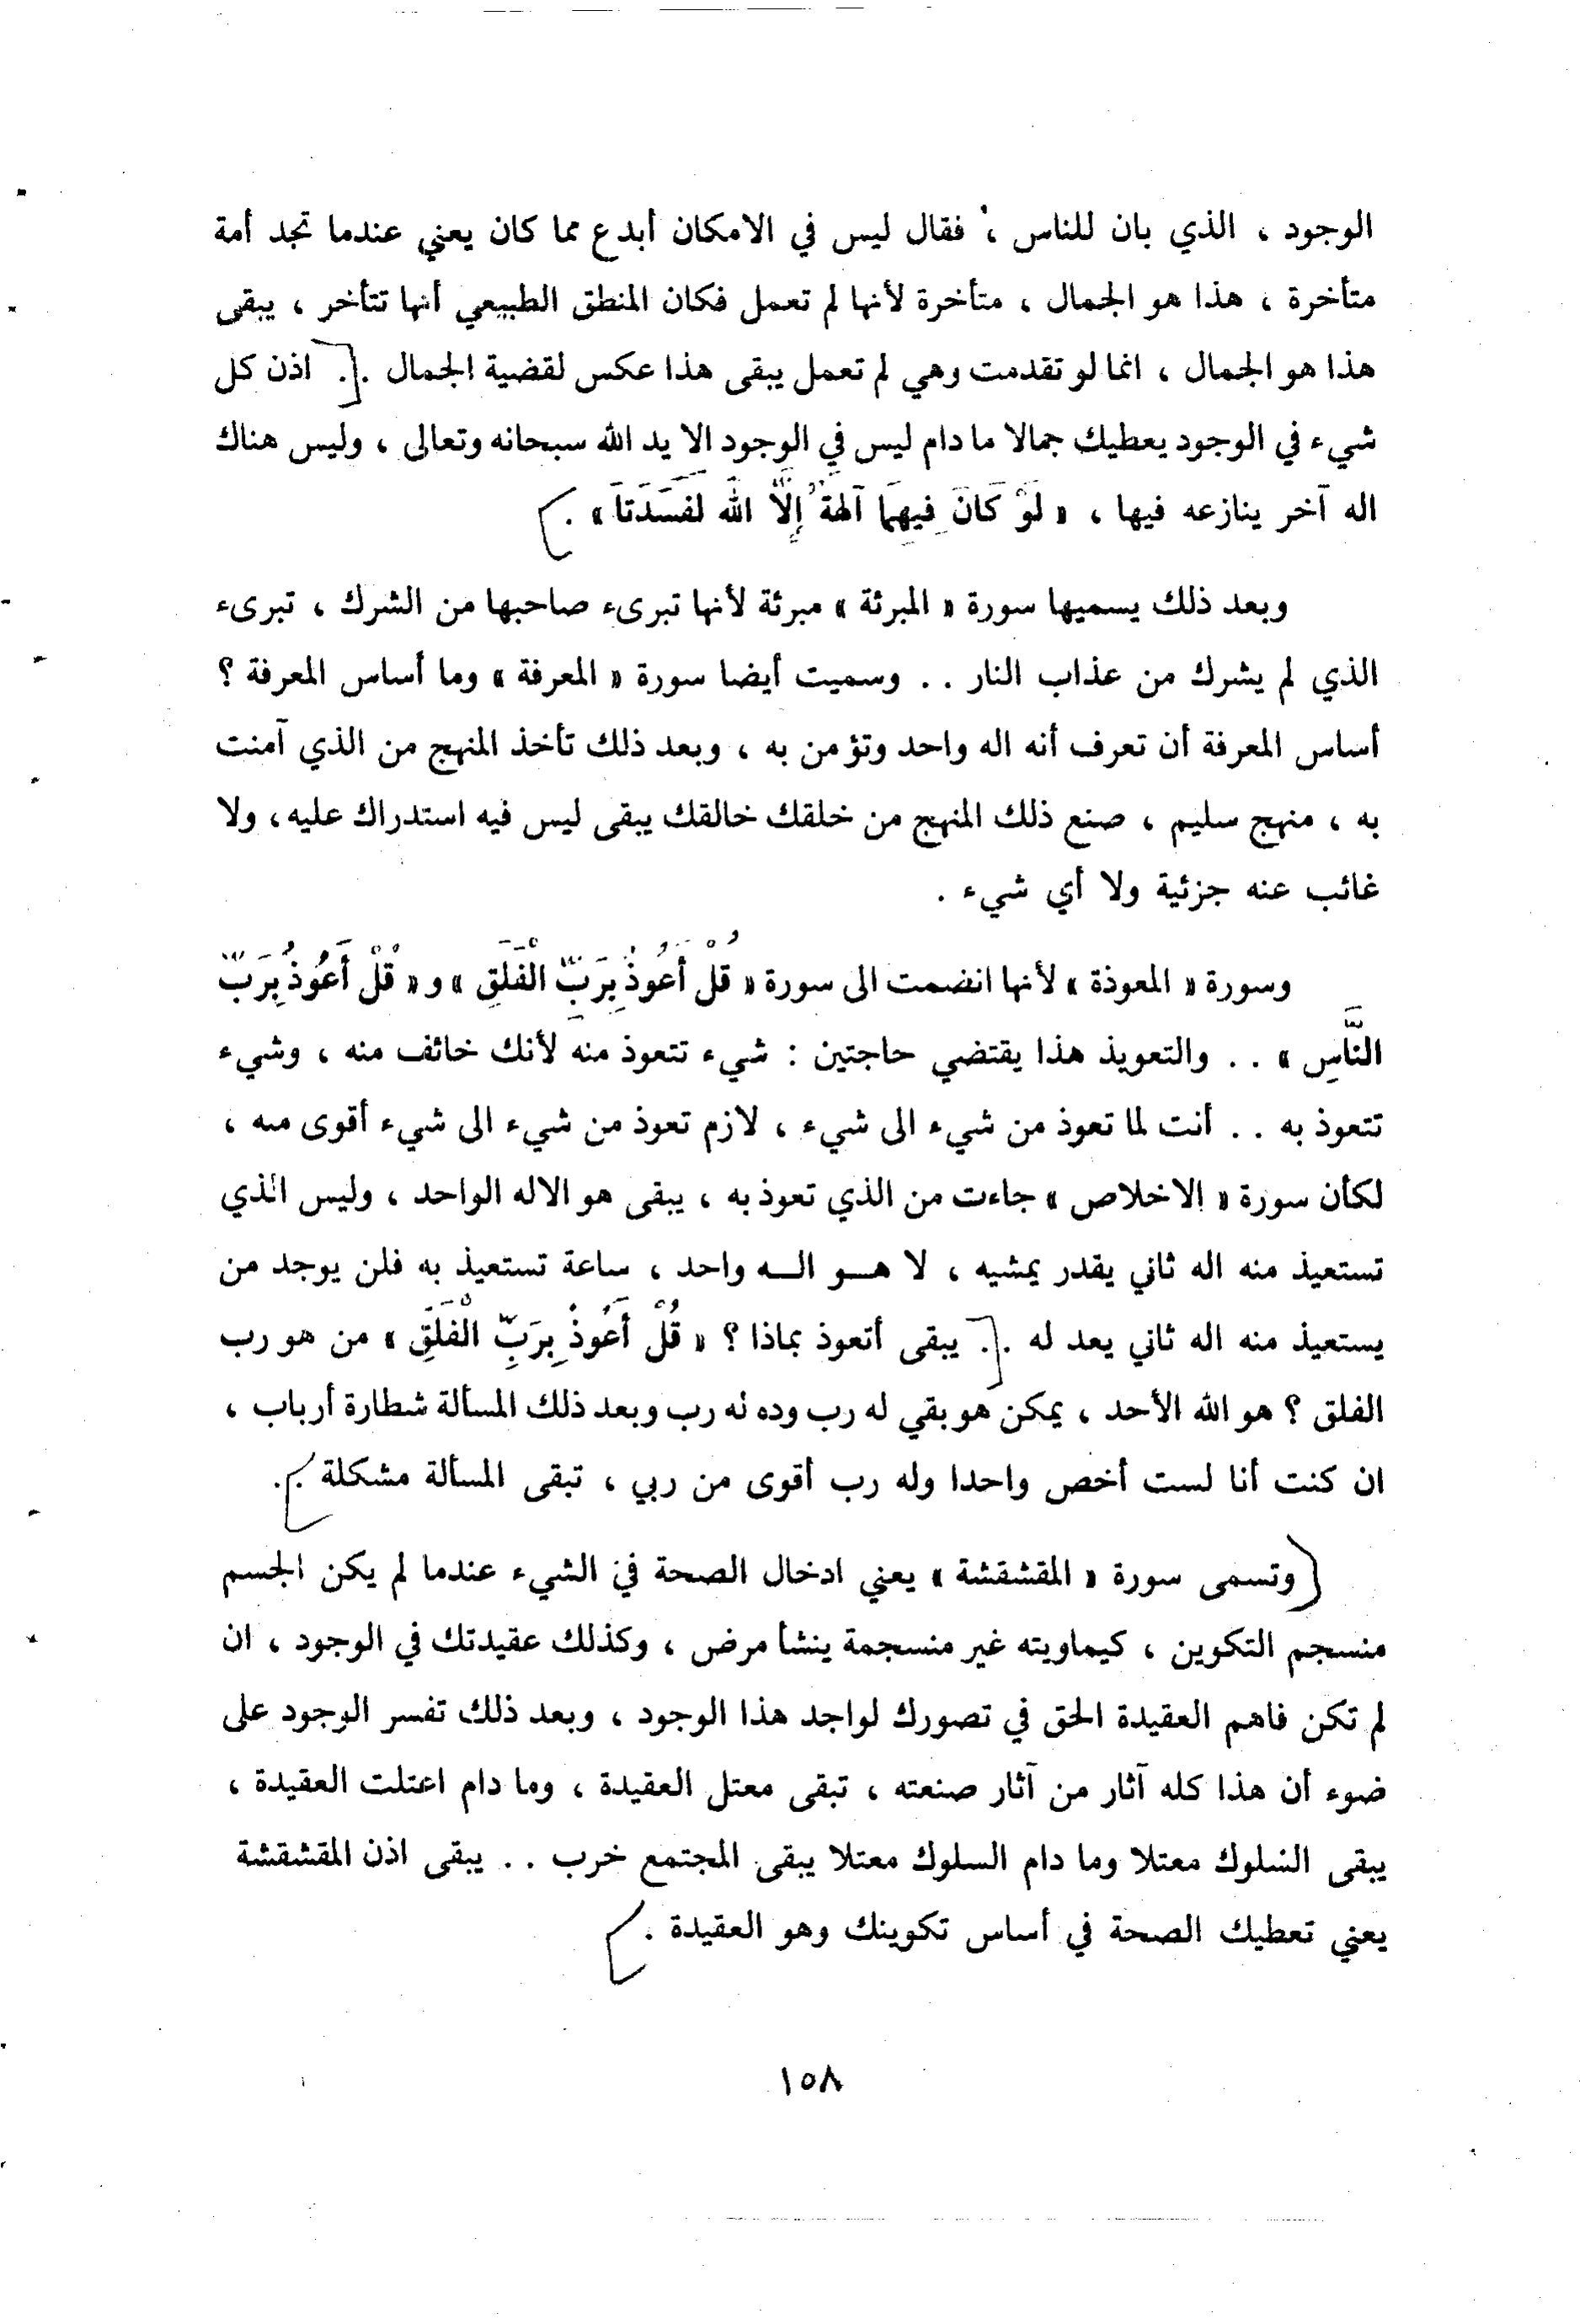 الوجود ، الذي بان للناس ، فقال ليس في الامكان أبدع مما كان يعني عندما تجد أمة
متأخرة ، هذا هو الجمال ، متأخرة لأنها لم تعمل فكان المنطق الطبيعي أنها تتأخر ، يبقى
هذا هو الجمال ، انما لو تقدمت وهي لم تعمل يبقى هذا عكس لقضية الجمال . . اذن كل
شيء في الوجود يعطيك جمالا ما دام ليس في الوجود الا يد الله سبحانه وتعالى ، وليس هناك
اله آخر ينازعه فيها ، « لَوْ كَانَ فِيهِمَا آلهةٌ إِلَّا اللَّه لَفَسَدَتَا » .
وبعد ذلك يسميها سورة « المبرئة » مبرئة لأنها تبرىء صاحبها من الشرك ، تبرىء
الذي لم يشرك من عذاب النار . . وسميت أيضا سورة « المعرفة » وما أساس المعرفة ؟
أساس المعرفة أن تعرف أنه اله واحد وتؤمن به ، وبعد ذلك تأخذ المنهج من الذي آمنت
به ، منهج سليم ، صنع ذلك المنهج من خلقك خالقك يبقى ليس فيه استدراك عليه ، ولا
غائب عنه جزئية ولا أي شيء .
وسورة « المعوذة » لأنها انضمت الى سورة « قُلْ أَعُوذُ بِرَبِّ الْفَلَقِ » و « قُلْ أَعُوذُ بِرَبِّ
النَّاسِ » . . والتعويذ هذا يقتضي حاجتين : شيء تتعوذ منه لأنك خائف منه ، وشيء
تتعوذ به . . أنت لما تعوذ من شيء الى شيء ، لازم تعوذ من شيء الى شيء أقوى منه ،
لكأن سورة « الاخلاص » جاءت من الذي تعوذ به ، يبقى هو الاله الواحد ، وليس الذي
تستعيذ منه اله ثاني يقدر يمشيه ، لا هـو الـه واحد ، ساعة تستعيذ به فلن يوجد من
يستعيذ منه اله ثاني يعد له . . يبقى أتعوذ بماذا ؟ « قُلْ أَعُوذُ بِرَبِّ الْفَلَقِ » من هو رب
الفلق ؟ هو الله الأحد ، يمكن هو بقي له رب وده له رب وبعد ذلك المسألة شطارة أرباب ،
ان كنت أنا لست أخص واحدا وله رب أقوى من ربي ، تبقى المسألة مشكلة . .
وتسمى سورة « المقشقشة » يعني ادخال الصحة في الشيء عندما لم يكن الجسم
منسجم التكوين ، كيماويته غير منسجمة ينشأ مرض ، وكذلك عقيدتك في الوجود ، ان
لم تكن فاهم العقيدة الحق في تصورك لواجد هذا الوجود ، وبعد ذلك تفسر الوجود على
ضوء أن هذا كله آثار من آثار صنعته ، تبقى معتل العقيدة ، وما دام اعتلت العقيدة ،
يبقى السلوك معتلا وما دام السلوك معتلا يبقى المجتمع خرب . . يبقى اذن المقشقشة
يعني تعطيك الصحة في أساس تكوينك وهو العقيدة .
١٥٨